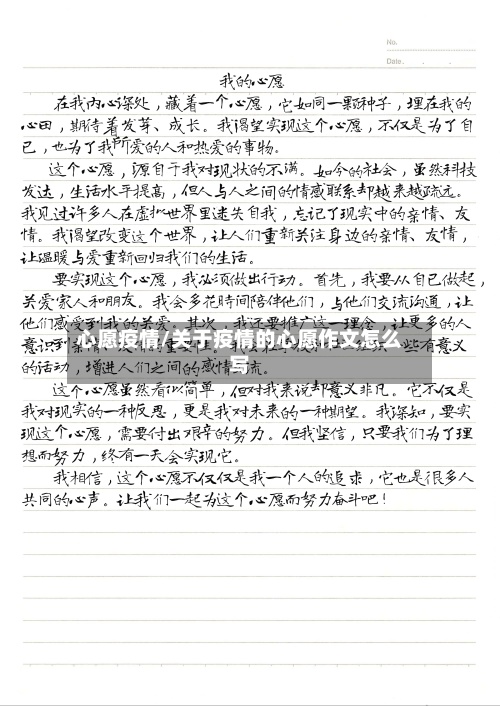 No.
Date. . .
我的心愿
在我内心深处，藏着一个心愿，它如同一颗种子，埋在我的
心田，期待着发芽、成长。我渴望实现这个心愿，不仅是为了自
己，也为了我所爱的人和热爱的事物。
这个心愿，源自于我对现状的不满。如今的社会，虽然科技
发达，生活水平提高，但人与人之间的情感联系却越来越疏远。
我见过许多人在虚拟世界里迷失自我，忘记了现实中的亲情、友
情。我渴望改变这个世界，让人们重新关注身边的亲情、友情，
让温暖与爱重新回归我们的生活。
要实现这个心愿，我必须做出行动。首先，我要从自己做起，
关爱家人和朋友。我会多花时间陪伴他们，与他们交流沟通，让
他们感受到我的关爱。其次，我还要推广这一理念，让更多的人
意识到亲情
些有意义
心愿疫情/关于疫情的心愿作文怎么
写
的活动，增进人们之间的感情交流。
这个心愿虽然看似简单，但对我来说却意义非凡。它不仅是
我对现实的一种反思，更是我对未来的一种期望。我深知，要实
现这个心愿，需要付出艰辛的努力。但我坚信，只要我们为了理
想而努力，终有一天会实现它。
我相信，这个心愿不仅仅是我一个人的追求，它也是很多人
共同的心声。让我们一起为这个心愿而努力奋斗吧！